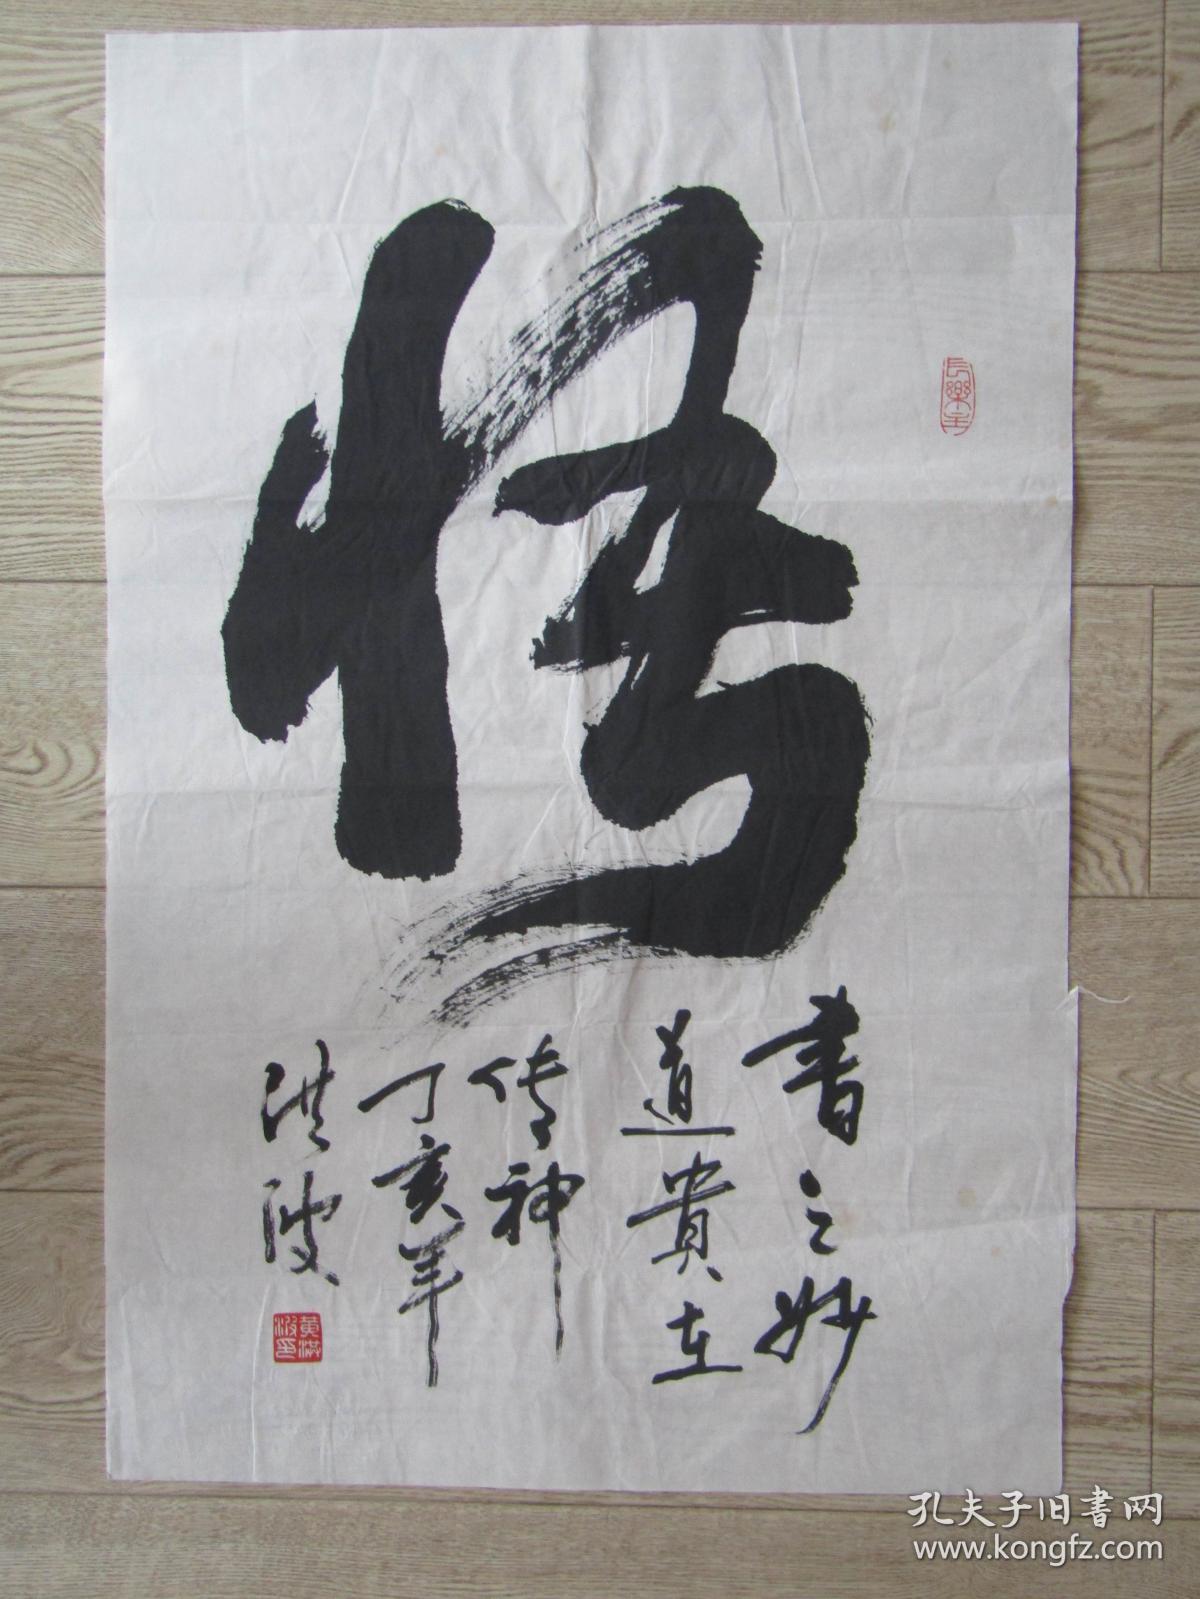 悟
書之妙
道貴在
传神
丁亥年
洪波
長樂
黃洪波印
孔夫子旧书网
www.kongfz.com